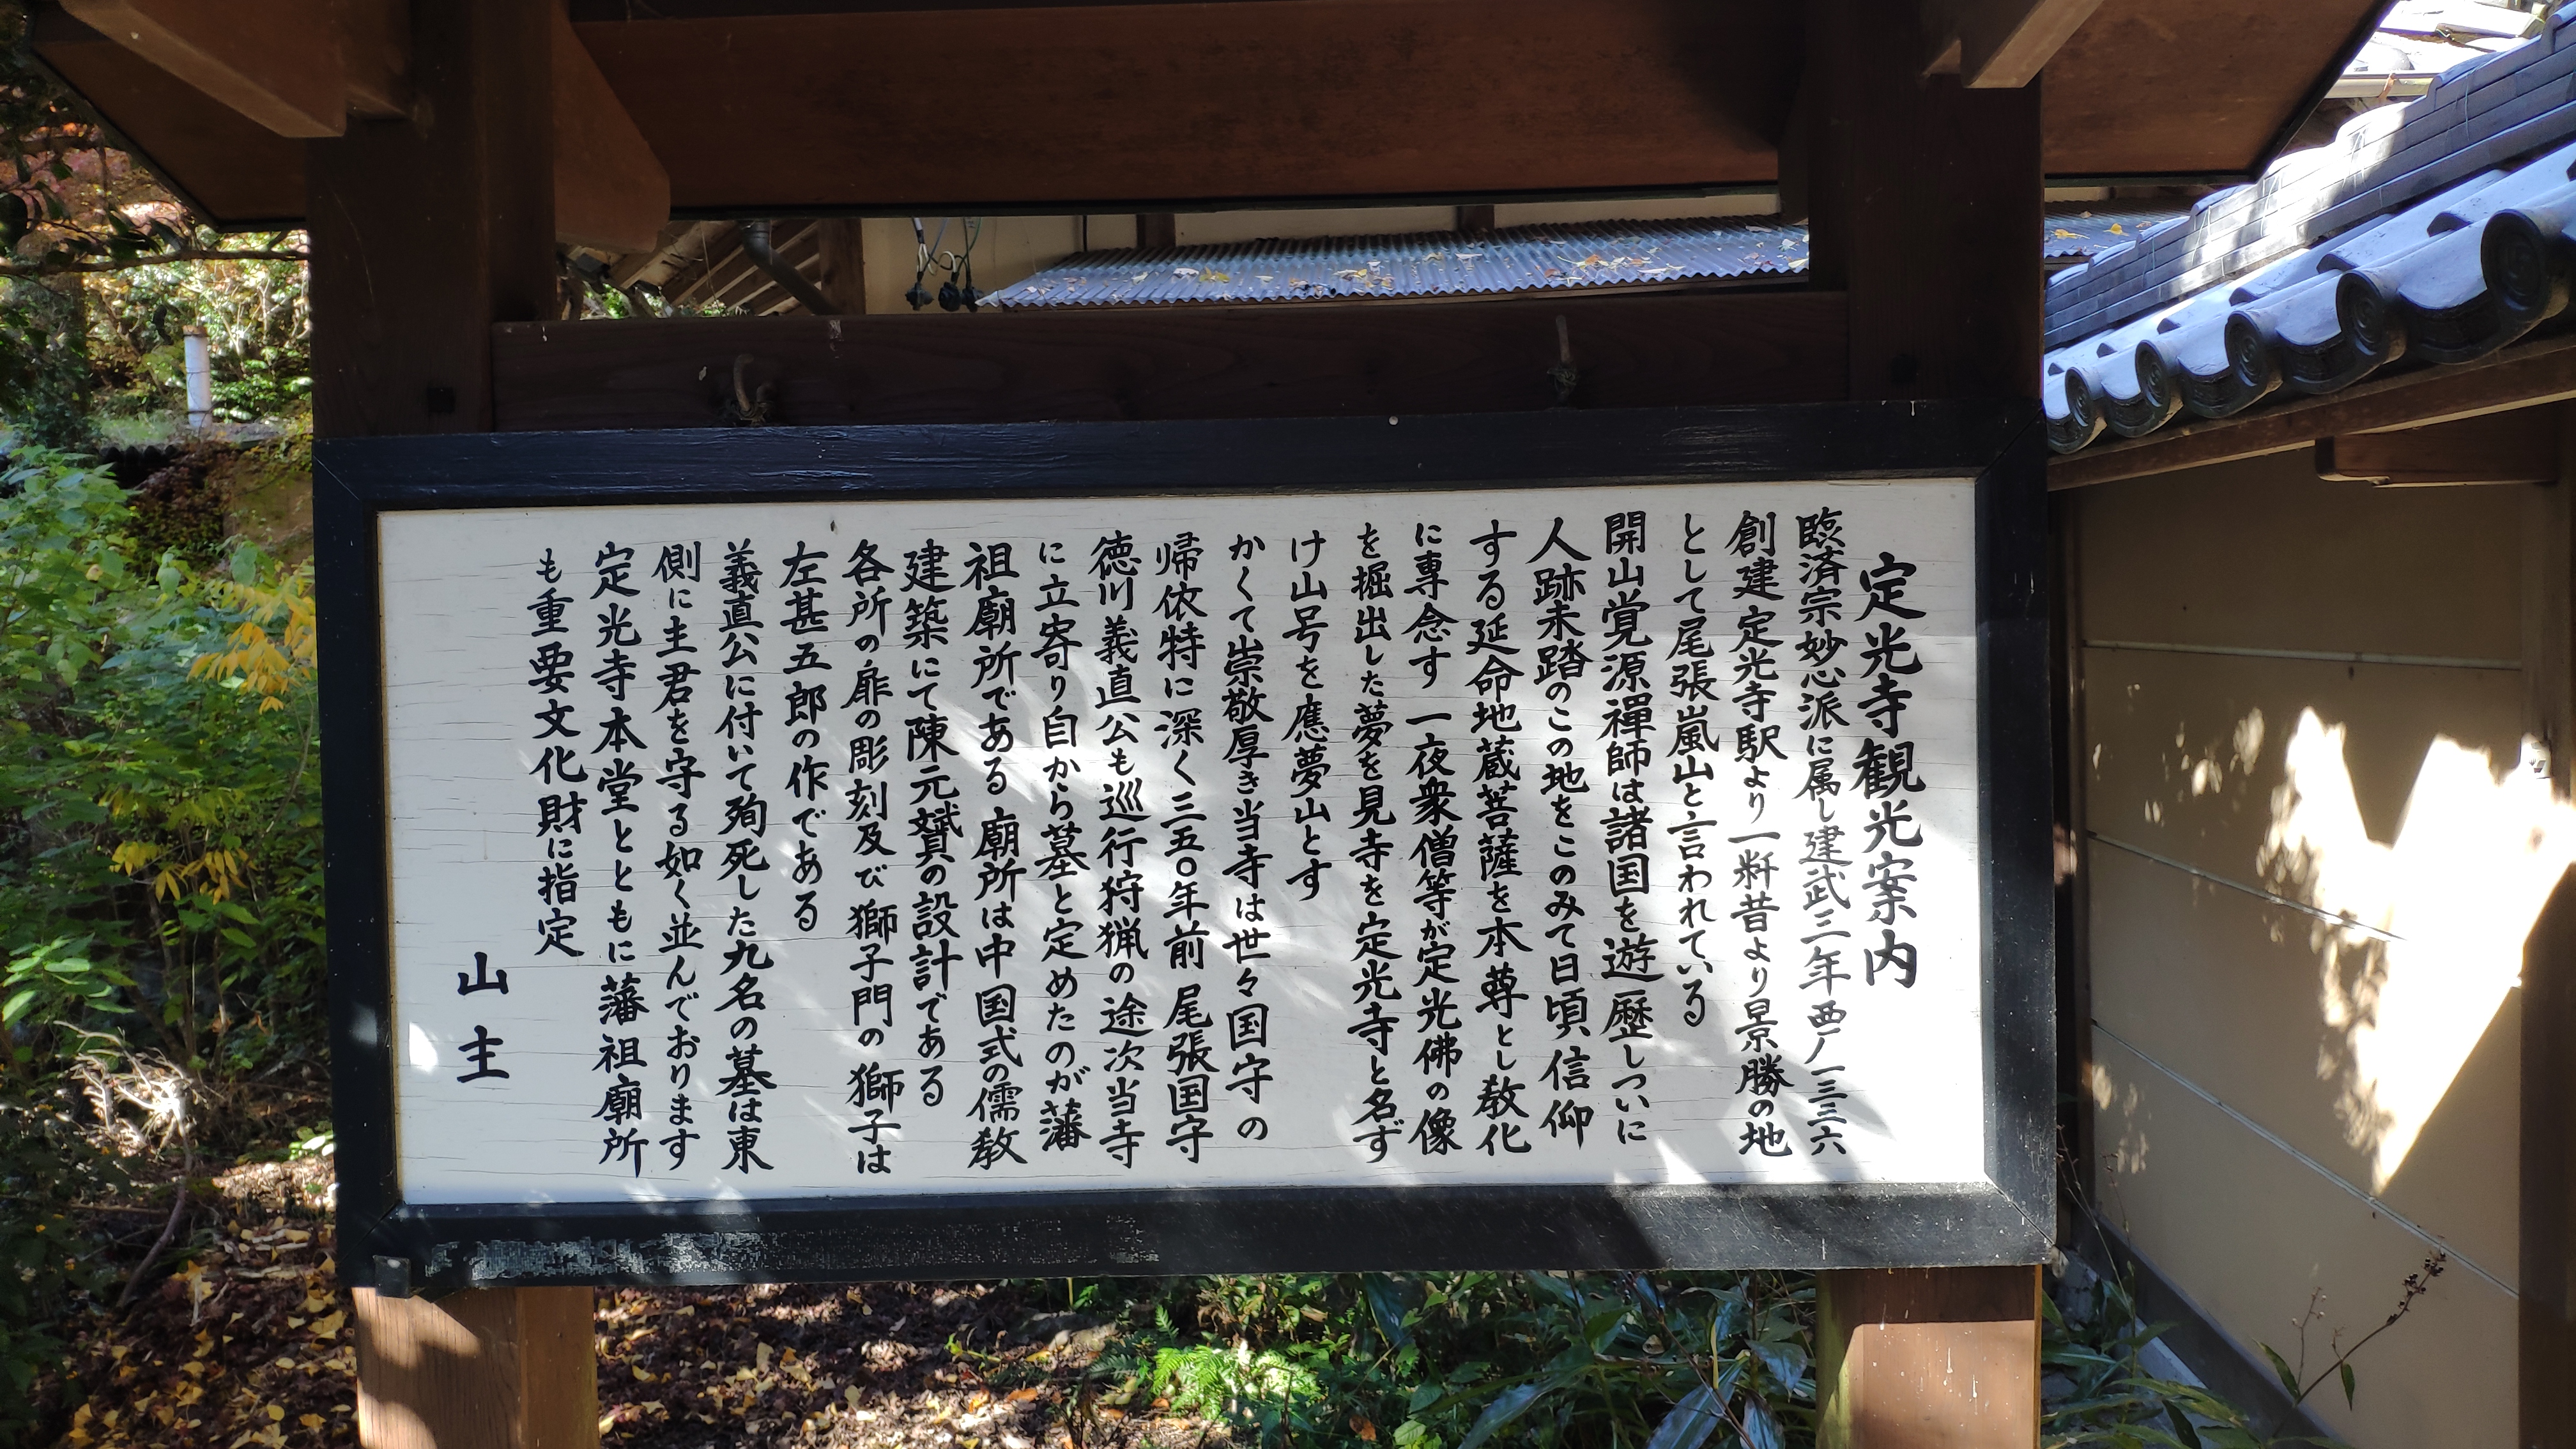 定光寺観光案内
臨済宗妙心派に属し建武三年西ノ一三三六
創建定光寺駅より一粁昔より景勝の地
として尾張嵐山と言われている
開山覚源禪師は諸国を遊歴しついに
人跡未踏のこの地をこのみて日頃信仰
する延命地蔵菩薩を本尊とし教化
に専念す 一夜衆僧等が定光佛の像
を掘出した夢を見寺を定光寺と名ず
け山号を應夢山とす
かくて崇敬厚き当寺は世々国守の
帰依特に深く三五〇年前尾張国守
徳川義直公も巡行狩猟の途次当寺
に立寄り自から墓と定めたのが藩
祖廟所である 廟所は中国式の儒教
建築にて陳元贇の設計である
各所の扉の彫刻及び獅子門の獅子は
左甚五郎の作である
義直公に付いて殉死した九名の墓は東
側に主君を守る如く並んでおります
定光寺本堂とともに藩祖廟所
も重要文化財に指定
山主